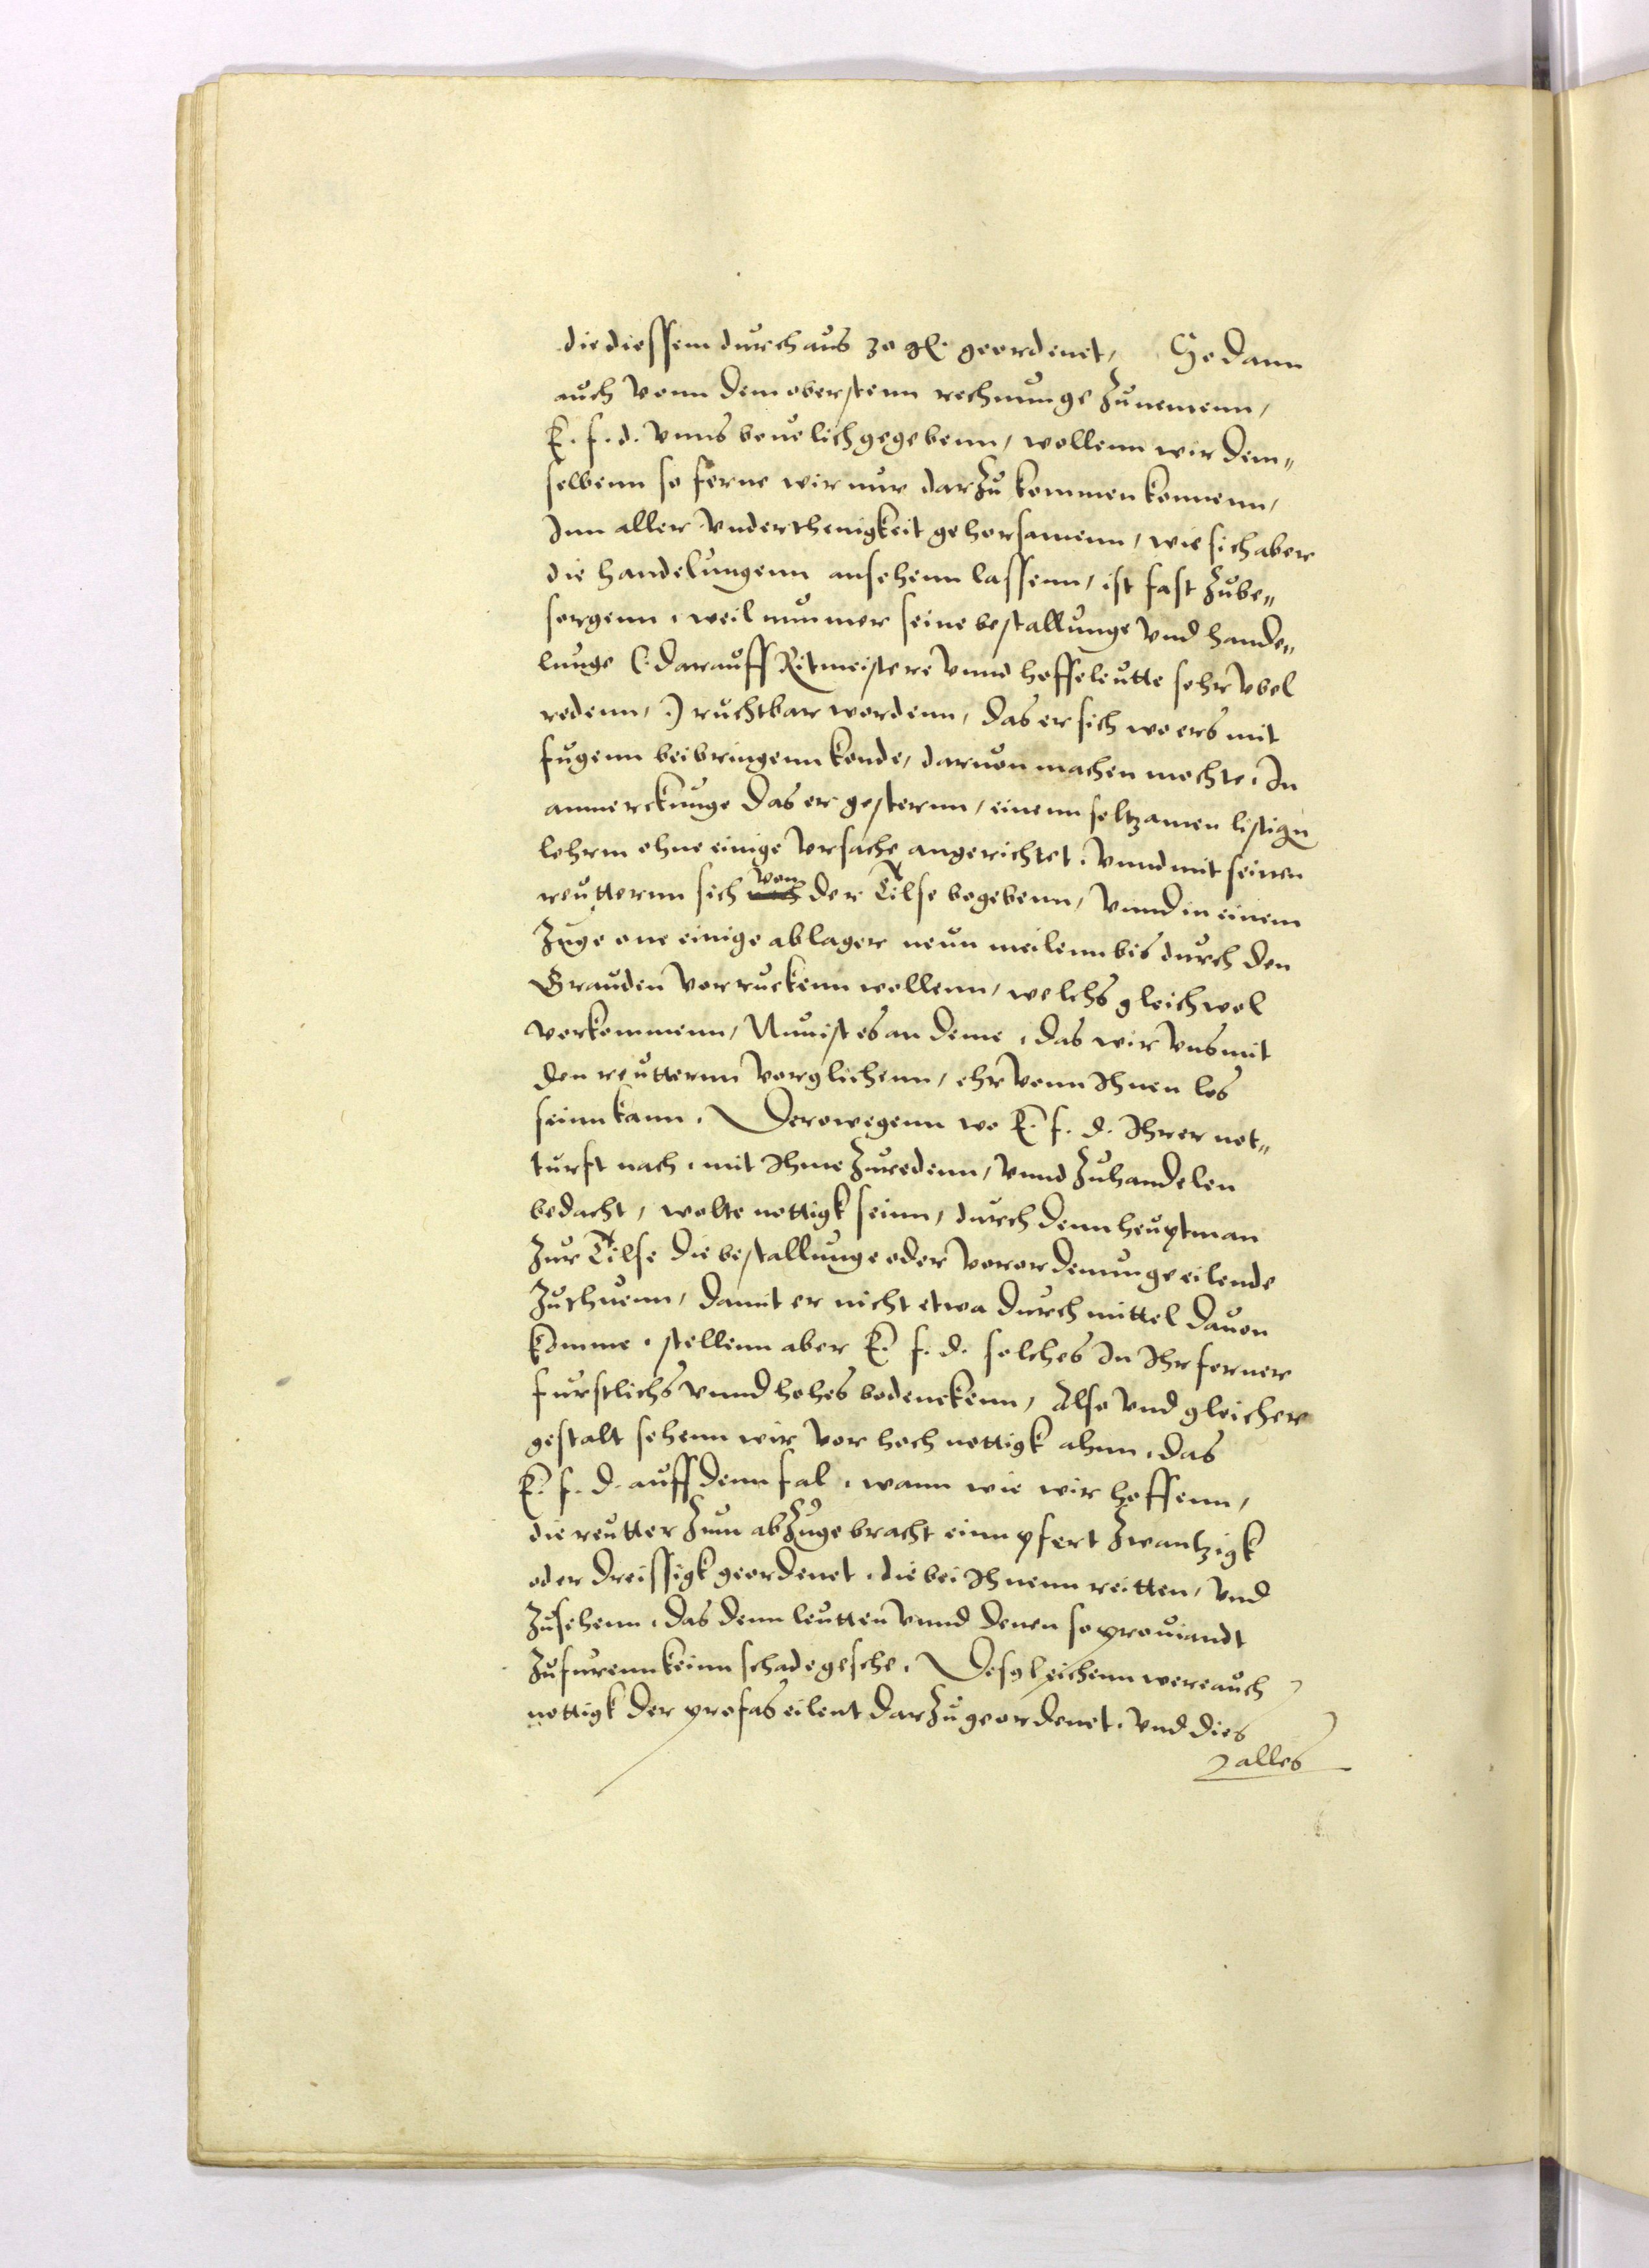 die diessem durchaus 30 gl. geordenet, So dann
auch vonn dem oberstenn rechnunge zunemenn,
E. f. d. vnns beuelich gegebenn, wollenn wir dem„
selbenn so ferne wir nur darzu kommen konnenn,
Inn aller vnderthenigkeit gehorsamenn, wie sich aber
die handelungenn ansehenn lassenn, ist fast zube„
sorgenn, weil nunmer seine bestallunge vnd hande„
lunge (: darauff Ritmeistere vnnd hoffeleutte sehr vbel
redenn, :) ruchtbar wordenn, das er sich wo ers mit
fugenn beibringenn konde, daruon machen mochte, In
anmerckunge das er gesternn, einenn seltzamen listign
lehrm ohne einige vrsache angerichtet, vnnd mit seinen
reutternn sich von der Tilse begebenn, vnnd in einem
Zuge one einige ablager neun meilenn bis durch den
Grauden vorruckenn wollenn, welchs gleichwol
vorkommenn, Nun ist es an deme, das wir vns mit
den reutternn vorglichenn, ehr vonn Ihnen los
seinn kann. Derowegenn wo E. f. d. Ihrer not„
turft nach, mit Ihme zuredenn, vnnd zuhandelen
bedacht, wolte nottigk seinn, durch denn heuptman
zur Tilse die bestallunge oder vorordenunge eilende
zuthuenn, damit er nicht etwa durch mittel dauon
komme, stellenn aber E. f. d. solches In Ihr ferner
furstlichs vnnd hohes bedenckenn, Also vnd gleicher
gestalt sehenn wir vor hoch nottigk ahnn, das
E. f. d. auff denn fal, wann wie wir hoffenn,
die reutter zum abzuge bracht einn pfert zwantzigk
oder dreissigk geordenet, die bei Ihnenn reitten, vnd
zusehenn, das denn leutten vnnd denen so prouiandt
zufurenn keinn schade gesche. Desgleichenn were auch
nottigk der profas eilent darzu geordenet, vnd dies
alles